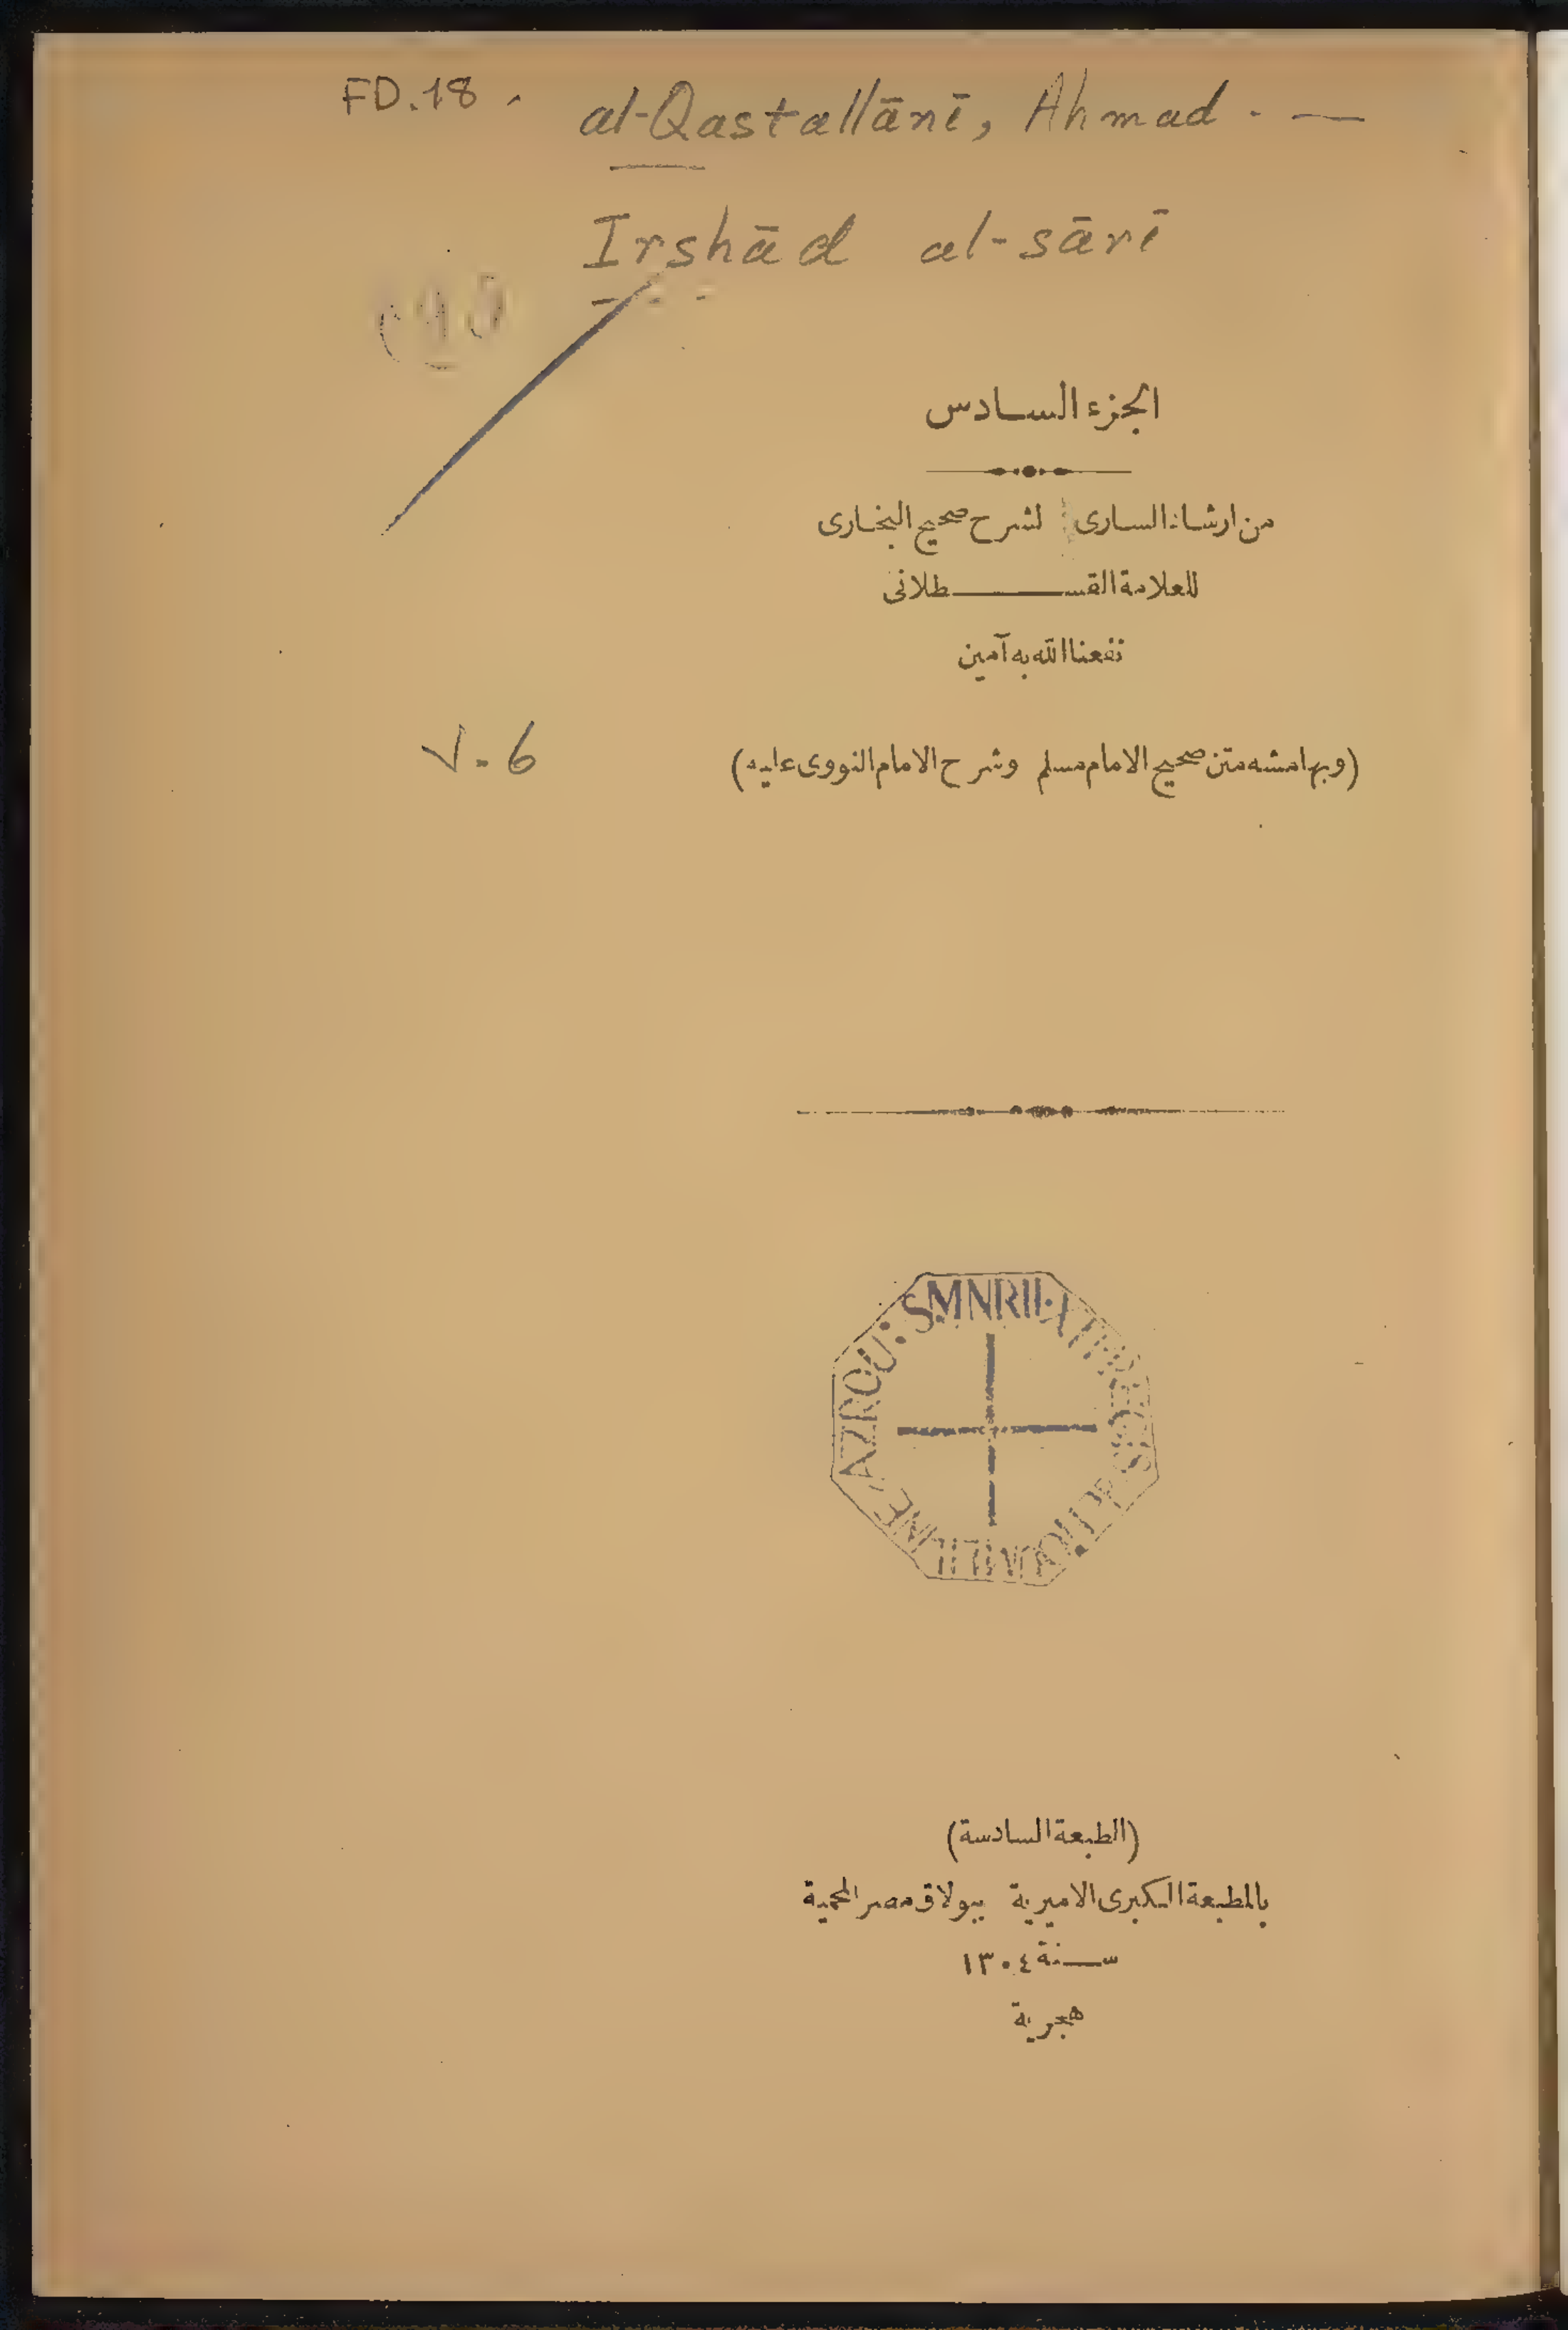 FD.18 . al-Qastallānī, Ahmad . —
Irshād al-sārī
الجزء السادس
من ارشاد السارى لشرح صحيح البخارى
للعلامة القسطلانى
نفعنا الله به آمين
(وبهامشه متن صحيح الامام مسلم وشرح الامام النووى عليه)
V. 6
AZROU: S.MNRII.
(الطبعة السادسة)
بالمطبعة الكبرى الاميرية ببولاق مصر المحمية
سنة ١٣٠٤
هجرية